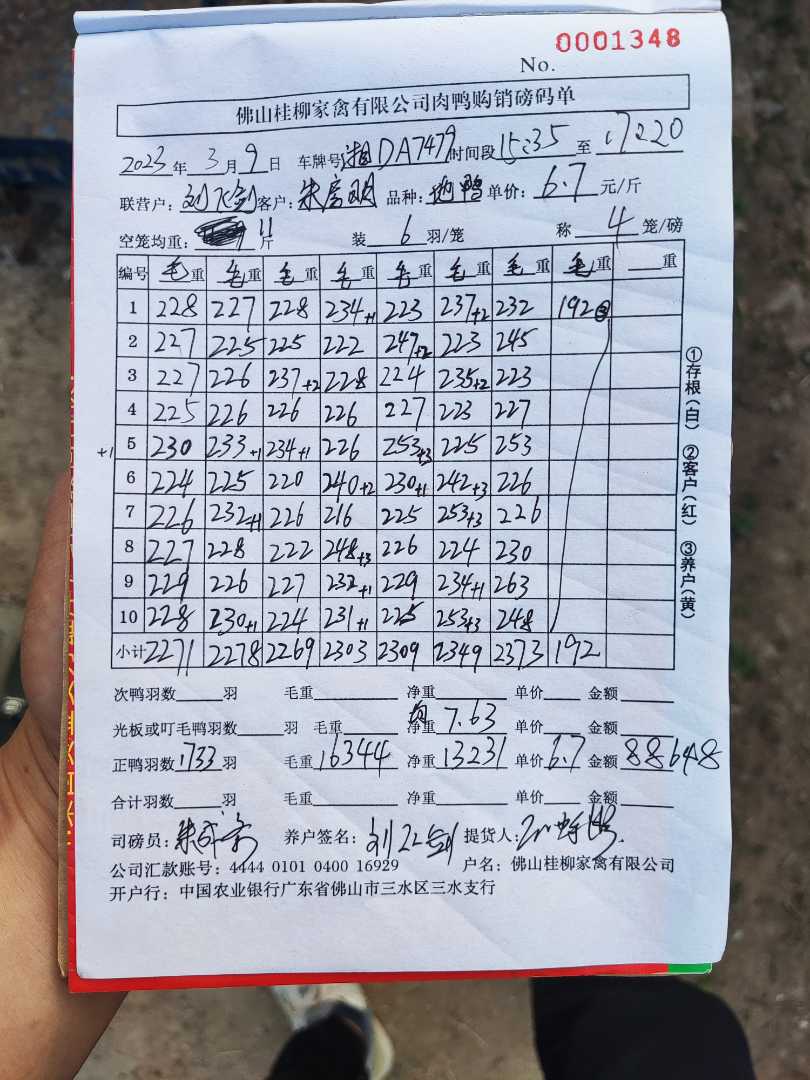 0001348
No.
佛山桂柳家禽有限公司肉鸭购销磅码单
2023年3月9日 车牌号湘DA7479时间段15:35至17:20
联营户: 客户:朱 品种: 鸭 单价:6.7元/斤
空笼均重: 11斤 装6羽/笼 称4笼/磅
编号 毛重 毛重 毛重 毛重 毛重 毛重 毛重 毛重 重
1 228 227 228 234+1 223 237+2 232 192③
2 227 225 225 222 247+2 223 245
3 227 226 237+2 228 224 235+2 223
4 225 226 226 226 227 223 227
+1 5 230 233+1 234+1 226 253+3 225 253
6 224 225 220 240+2 230+1 242+3 226
7 226 232+1 226 216 225 253+3 226
8 227 228 222 248+3 226 224 230
9 229 226 227 232+1 229 234+1 263
10 228 230+1 224 231+1 225 253+3 248
小计 2271 2278 2269 2303 2309 2349 2373 192
次鸭羽数 羽 毛重 净重 单价 金额
光板或叮毛鸭羽数 羽 毛重 净重 7.63 单价 金额
正鸭羽数1733羽 毛重16344 净重13231 单价6.7 金额88648
合计羽数 羽 毛重 净重 单价 金额
司磅员:朱 养户签名:刘 提货人:
公司汇款账号:4444 0101 0400 16929 户名:佛山桂柳家禽有限公司
开户行:中国农业银行广东省佛山市三水区三水支行
①存根(白) ②客户(红) ③养户(黄)